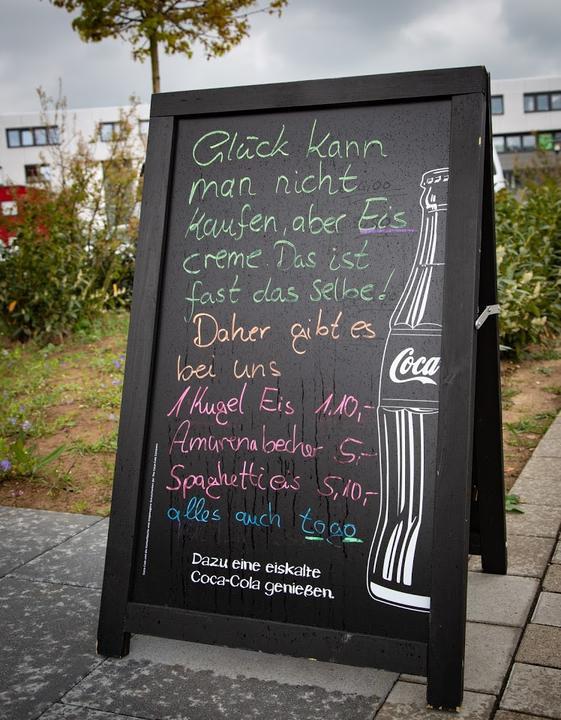 Glück kann
man nicht
kaufen, aber Eis
creme. Das ist
fast das selbe!
Daher gibt es
bei uns
1 Kugel Eis 1,10,-
Amarenabecher 5,-
Spaghettieis 5,10,-
alles auch togo
Dazu eine eiskalte
Coca-Cola genießen.
Coca